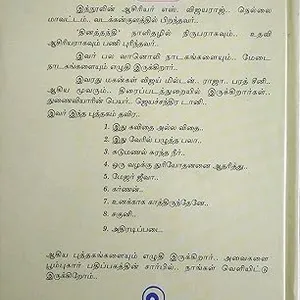 இந்நூலின் ஆசிரியர் எஸ். விஜயராஜ்.. நெல்லை
மாவட்டம். வடக்கன்குளத்தில் பிறந்தவர்..
'தினத்தந்தி' நாளிதழில் நிருபராகவும், உதவி
ஆசிரியராகவும் பணி புரிந்தவர்..
இவர் பல வானொலி நாடகங்களையும்.. மேடை
நாடகங்களையும் எழுதி இருக்கிறார்..
இவரது மகன்கள் விஜய் மில்டன்.. ராஜா.. பரத் சீனி..
ஆகிய மூவரும்.. திரைப்படத்துறையில் இருக்கிறார்கள்..
துணைவியாரின் பெயர்.. ஜெயச்சந்திரா டானி..
இவர் இந்த புத்தகம் தவிர..
1. இது கவிதை அல்ல விதை..
2. இது வேரில் பழுத்த பலா..
3. கடுமணல் சுரந்த நீர்..
4. ஒரு வழக்கு துரியோதனனை ஆதரித்து..
5. மேஜர் ஜீவா..
6. கர்ணன்..
7. உனக்காக காத்திருந்தேனே..
8. சகுனி..
9. அதிரடிப்படை..
ஆகிய புத்தகங்களையும் எழுதி இருக்கிறார்.. அவைகளை
பூம்புகார் பதிப்பகத்தின் சார்பில்.. நாங்கள் வெளியிட்டு
இருக்கிறோம்..